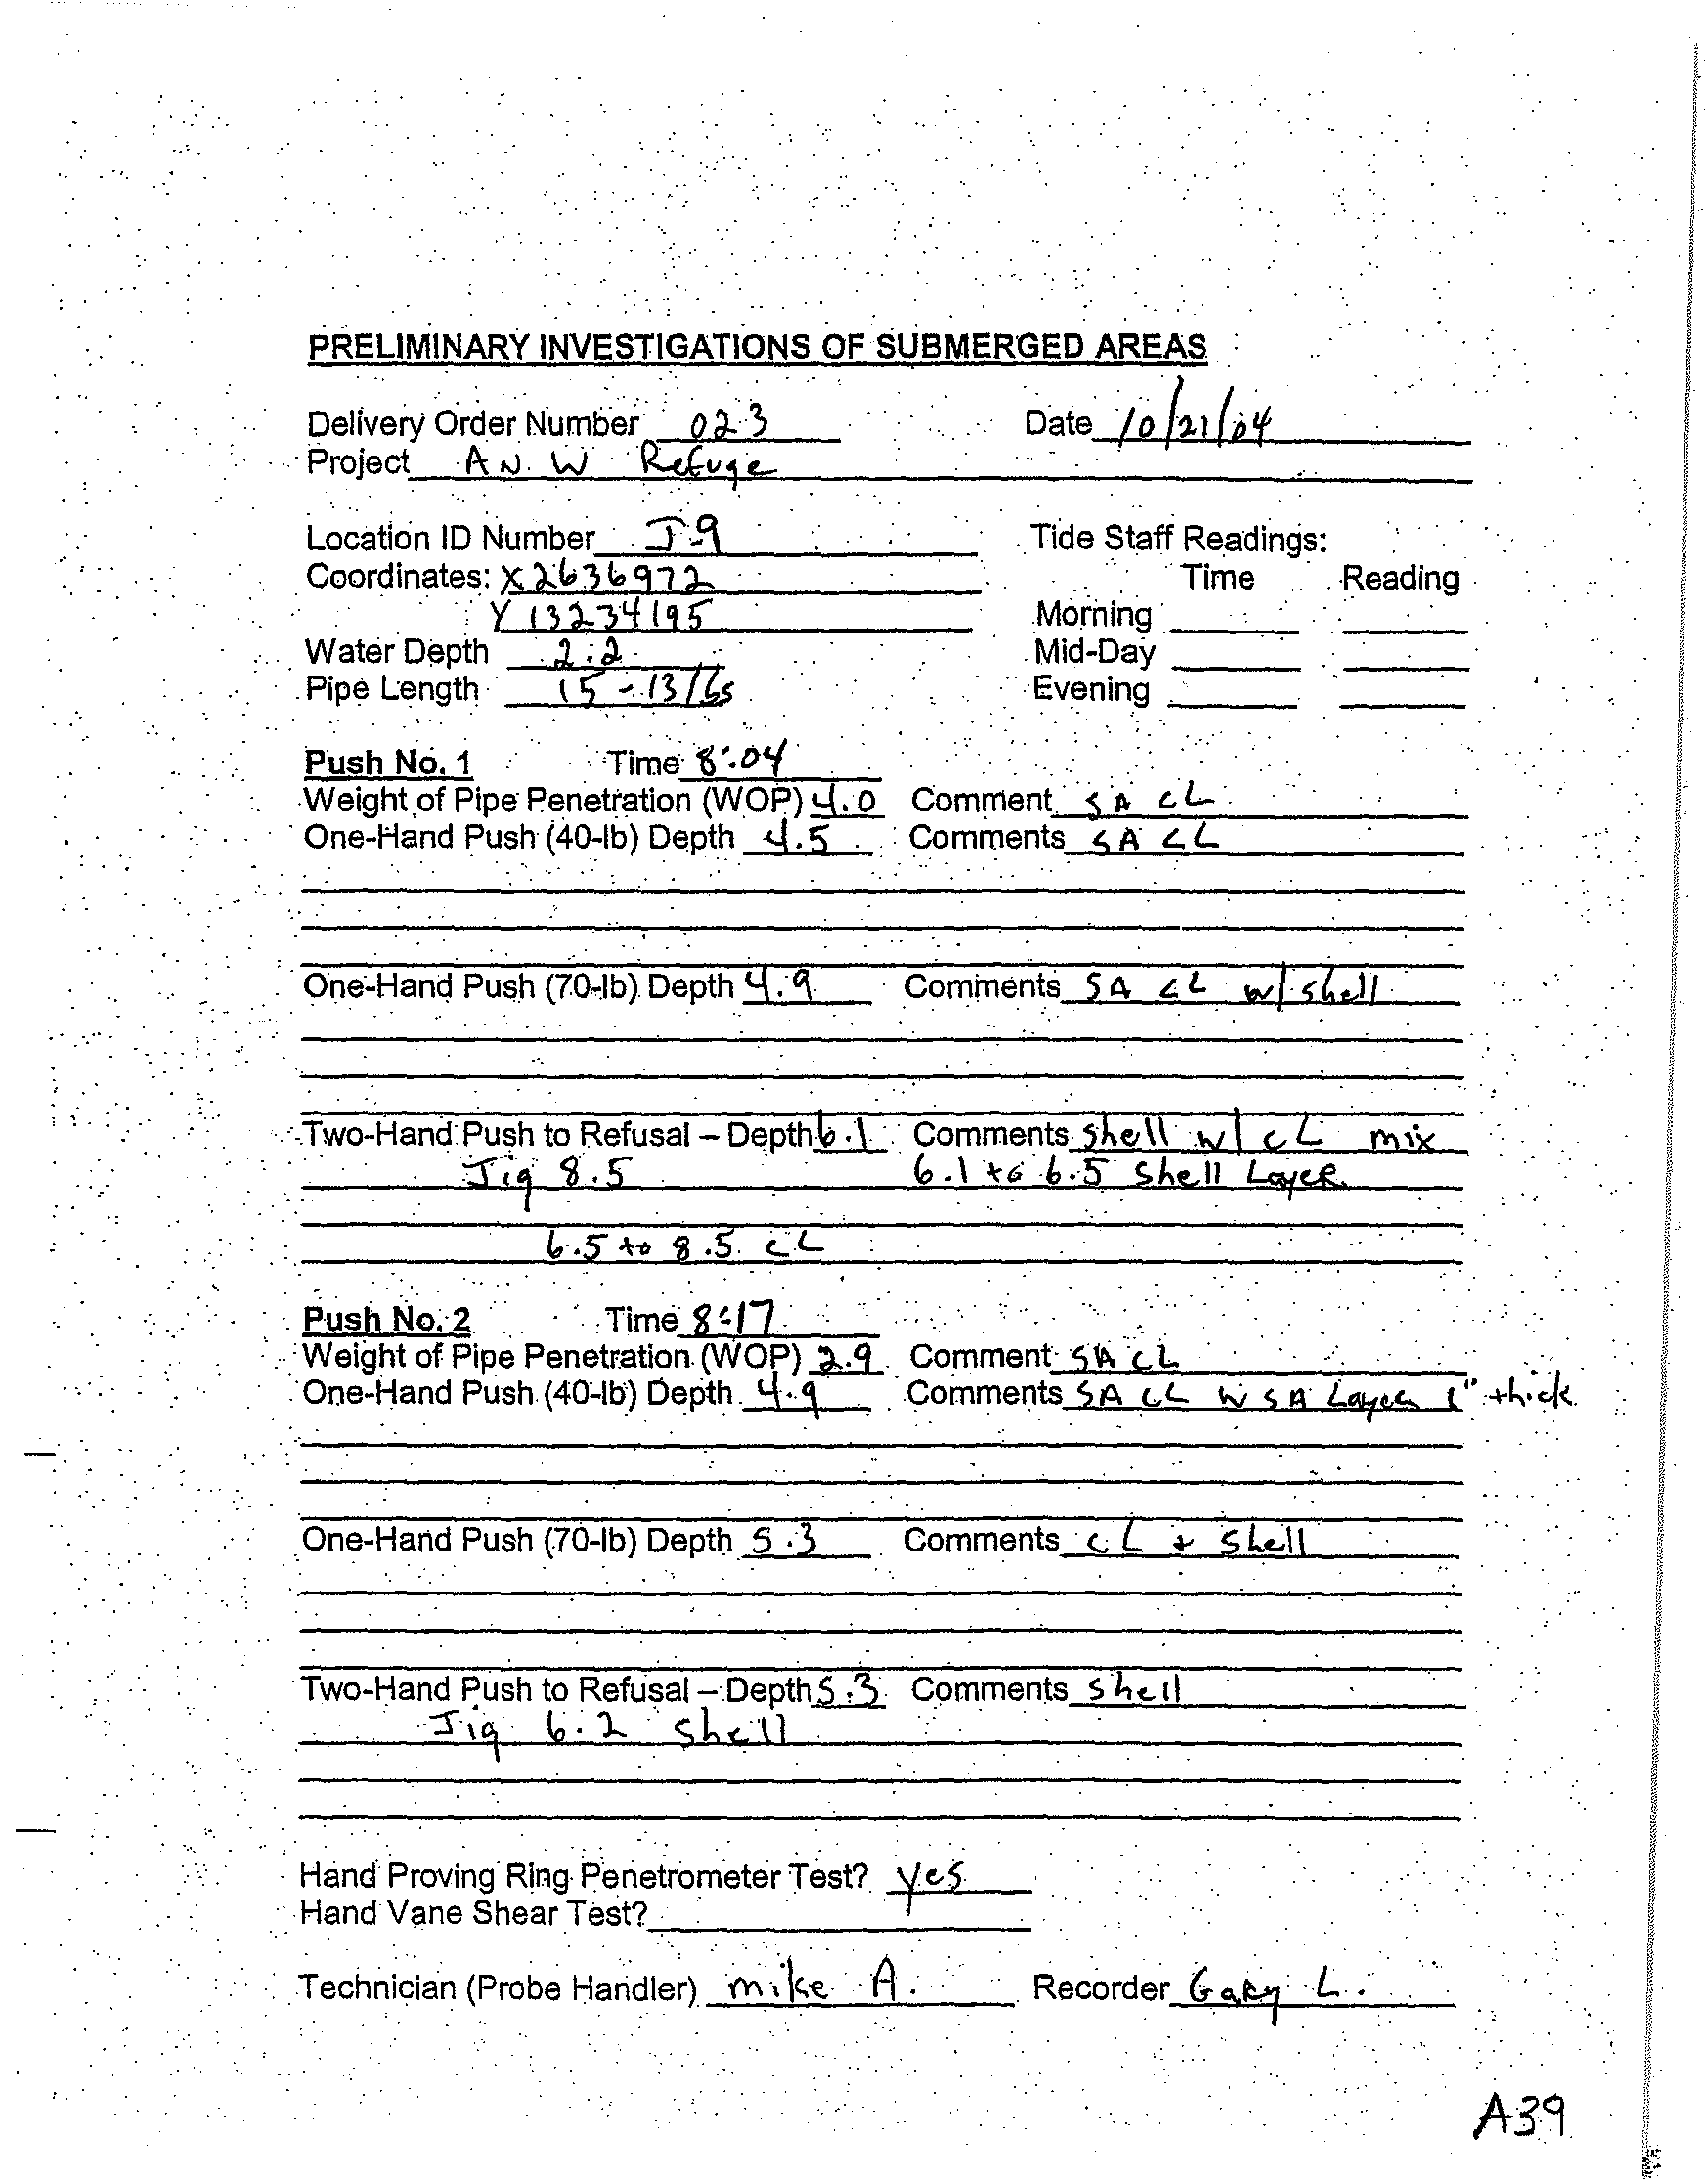 PRELIMINARY INVESTIGATIONS OF SUBMERGED AREAS
Delivery Order Number 023 Date 10/21/04
Project A N. W Refuge
Location ID Number J-9 Tide Staff Readings:
Coordinates: X 2636972 Time Reading
Y 13234195 Morning
Water Depth 2.2 Mid-Day
Pipe Length 15 - 13 lbs Evening
Push No. 1 Time 8:04
Weight of Pipe Penetration (WOP) 4.0 Comment SA CL
One-Hand Push (40-lb) Depth 4.5 Comments SA CL
One-Hand Push (70-lb) Depth 4.9 Comments SA CL w/ shell
Two-Hand Push to Refusal – Depth 6.1 Comments shell w/ CL mix
Jig 8.5 6.1 to 6.5 shell Layer
6.5 to 8.5 CL
Push No. 2 Time 8:17
Weight of Pipe Penetration (WOP) 2.9 Comment SA CL
One-Hand Push (40-lb) Depth 4.9 Comments SA CL W SA Layer 1" thick
One-Hand Push (70-lb) Depth 5.3 Comments CL + shell
Two-Hand Push to Refusal – Depth 5.3 Comments shell
Jig 6.2 shell
Hand Proving Ring Penetrometer Test? yes
Hand Vane Shear Test?
Technician (Probe Handler) mike A. Recorder Gary L.
A39